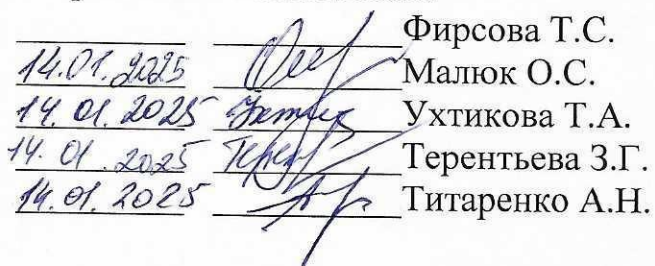 Фирсова Т.С.
14.01.2025 Малюк О.С.
14.01.2025 Ухтикова Т.А.
14.01.2025 Терентьева З.Г.
14.01.2025 Титаренко А.Н.